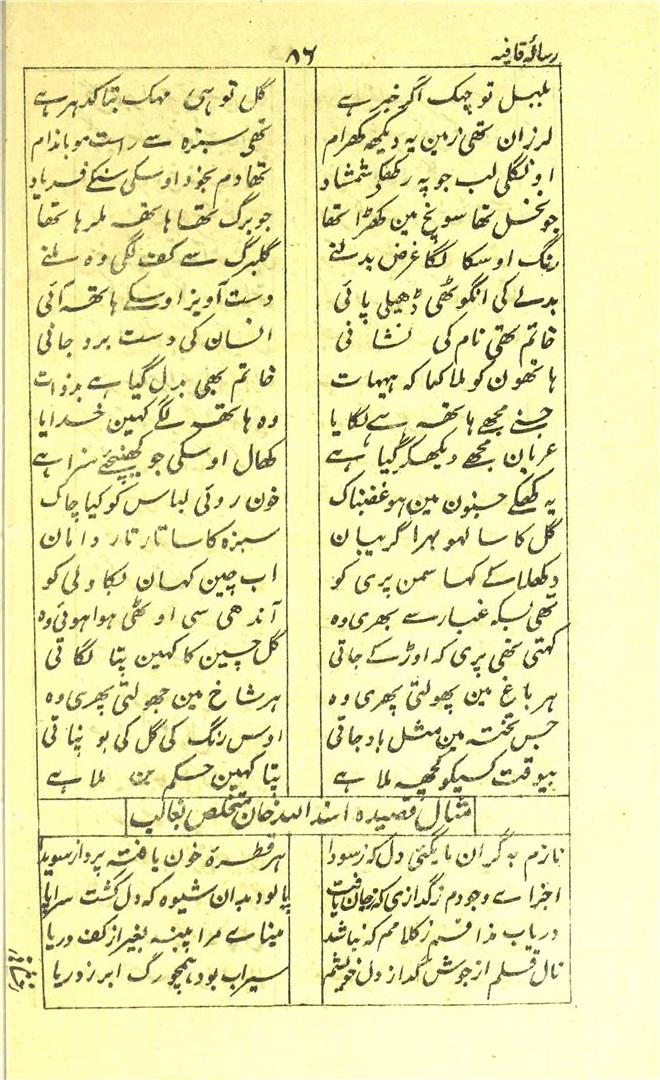 رسالۂ قافیہ ۸۶
بلبل تو چہک اگر خبر ہے گل تو ہی مہک بتا کدہر ہے
لرزان تھی زمین یہ دیکھہ کہرام تھی سبزہ سے راست مو باندام
اونگلی لب جو پہ رکھکے شمشاد تھا دم بخود اوسکی سنکے فریاد
جو نخل تھا سوپخ مین کھڑا تھا جو برگ تھا ہاتھہ ملرہا تھا
رنگ اوسکا لگا غرض بدلنے گلبرگ سے کف لگی وہ ملنے
بدلے کی انگوٹھی ڈھیلی پائی دست آویز اوسکے ہاتھہ آئی
خاتم تھی نام کی نشانی انسان کی دست برد جانی
ہاتھون کو ملا کہا کہ ہیہات خاتم بھی بدل گیا ہے بدذات
جسنے مجھے ہاتھہ ہے لگایا وہ ہاتھہ لگے کہین خدایا
عریان مجھے دیکھکر گیا ہے کھال اوسکی جو کھینچئے سزا ہے
یہ کھکے جنون مین ہو غضبناک خون روئی لباس کو کیا چاک
گل کا سا لہو بہرا گریبان سبزہ کا سا تار تار دامان
دکھلا کے کہا سمن پری کو اب چین کہان بکاولی کو
تھی بسکہ غبار سے بھری وہ آندھی سی اوٹھی ہوا ہوئی وہ
کہتی تھی پری کہ اوڑکے جاتی گل چین کا کہین پتا لگاتی
ہر باغ مین پھولتی پھری وہ ہر شاخ مین جھولتی پھری وہ
جس تختہ مین مثل باد جاتی اوس رنگ کی گل کی بو نپاتی
بیوقت کسیکو کچھہ ملا ہے پتا کہین حکم بن ملا ہے
مثال قصیدہ اسد اللہ خان متخلص بغالب
نازم بہ گران مایگئی دل کہ ز سودا ہر قطرۂ خون یافتہ پرداز سویدا
اجزاے وجودم ز گدازی کہ ز جان یافت پالود بدان شیوہ کہ دل گشت سراپا
دریاب مذاقم ز کلامم کہ نباشد میناے مرا پنبہ بغیر از کف دریا
نال قلم از جوش گداز دل خویشم سیراب بود ہمچو رگ ابر ز دریا